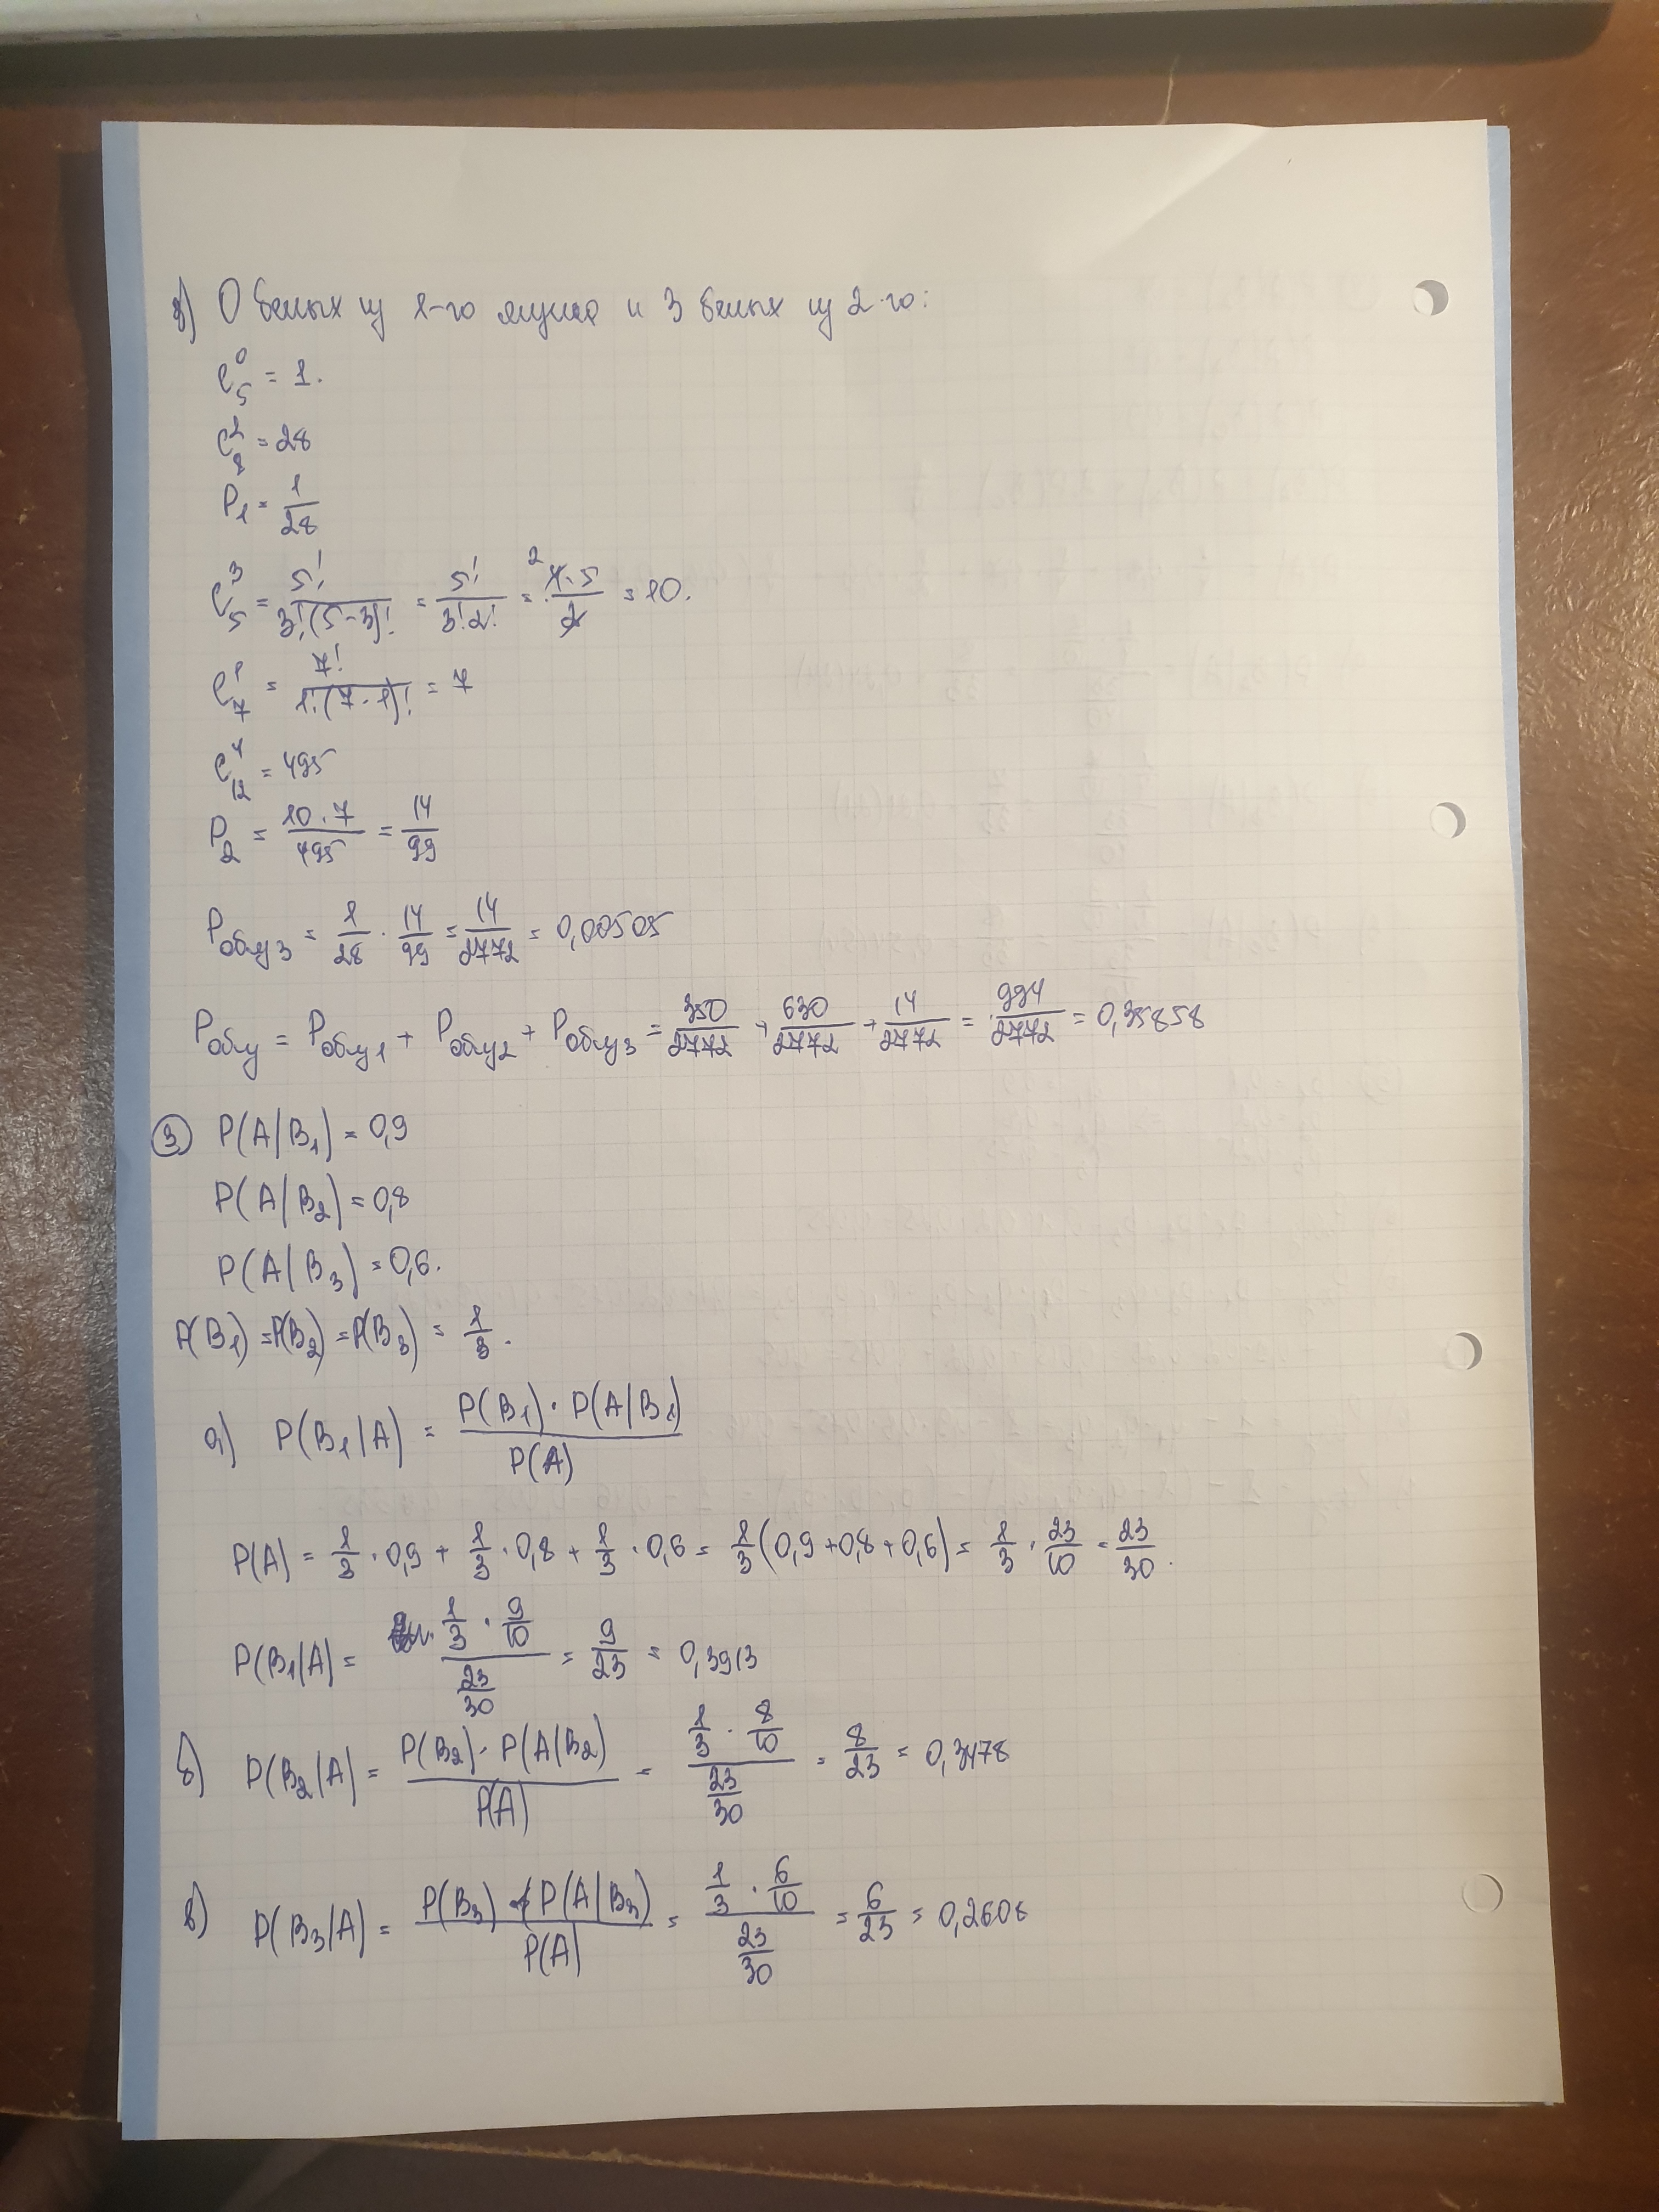 в) 0 белых из 1-го ящика и 3 белых из 2-го:
C₅⁰ = 1.
C₈² = 28
P₁ = 1/28
C₅³ = 5!/(3!(5-3)!) = 5!/(3!2!) = (4·5)/2 = 10.
C₇¹ = 7!/(1!·(7-1)!) = 7
C₁₂⁴ = 495
P₂ = (10·7)/495 = 14/99
Pобщ3 = 1/28 · 14/99 = 14/2772 = 0,00505
Pобщ = Pобщ1 + Pобщ2 + Pобщ3 = 350/2772 + 630/2772 + 14/2772 = 994/2772 = 0,35858
③ P(A|B₁) = 0,9
P(A|B₂) = 0,8
P(A|B₃) = 0,6.
P(B₁) = P(B₂) = P(B₃) = 1/3.
а) P(B₁|A) = (P(B₁)·P(A|B₁))/P(A)
P(A) = 1/3 · 0,9 + 1/3 · 0,8 + 1/3 · 0,6 = 1/3(0,9+0,8+0,6) = 1/3 · 23/10 = 23/30.
P(B₁|A) = (1/3 · 9/10)/(23/30) = 9/23 = 0,3913
б) P(B₂|A) = (P(B₂)·P(A|B₂))/P(A) = (1/3 · 8/10)/(23/30) = 8/23 = 0,3478
в) P(B₃|A) = (P(B₃)·P(A|B₃))/P(A) = (1/3 · 6/10)/(23/30) = 6/23 = 0,2608